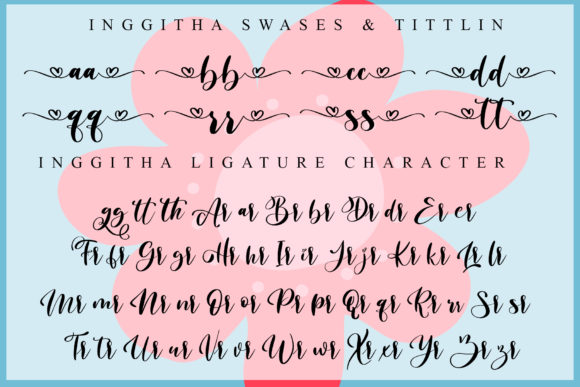 INGGITHA SWASES & TITTLIN
aa bb cc dd
qq rr ss tt
INGGITHA LIGATURE CHARACTER
gg tt th Ar ar Br br Dr dr Er er
Fr fr Gr gr Hr hr Ir ir Jr jr Kr kr Lr lr
Mr mr Nr nr Or or Pr pr Qr qr Rr rr Sr sr
Tr tr Ur ur Vr vr Wr wr Xr xr Yr Zr zr